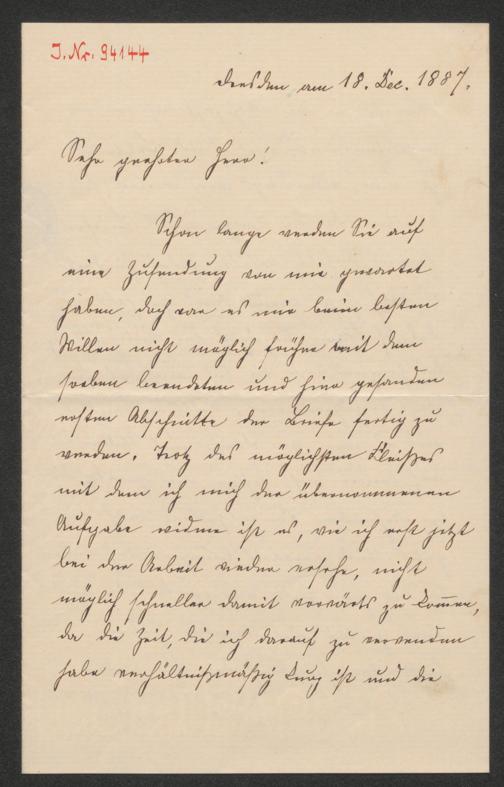 J. Nr. 94144
Dresden am 18. Dec. 1887.
Sehr geehrter Herr!
Schon lange werden Sie auf
eine Zusendung von mir gewartet
haben, doch war es mir beim besten
Willen nicht möglich früher mit dem
soeben beendeten und hier gesanden
ersten Abschnitte der Briefe fertig zu
werden. Trotz des möglichsten Fleißes
mit dem ich mich der übernommenen
Aufgabe widme ist es, wie ich erst jetzt
bei der Arbeit wieder ersehe, nicht
möglich schneller damit vorwärts zu kommen,
da die Zeit, die ich darauf zu verwenden
habe verhältnißmäßig kurz ist und die